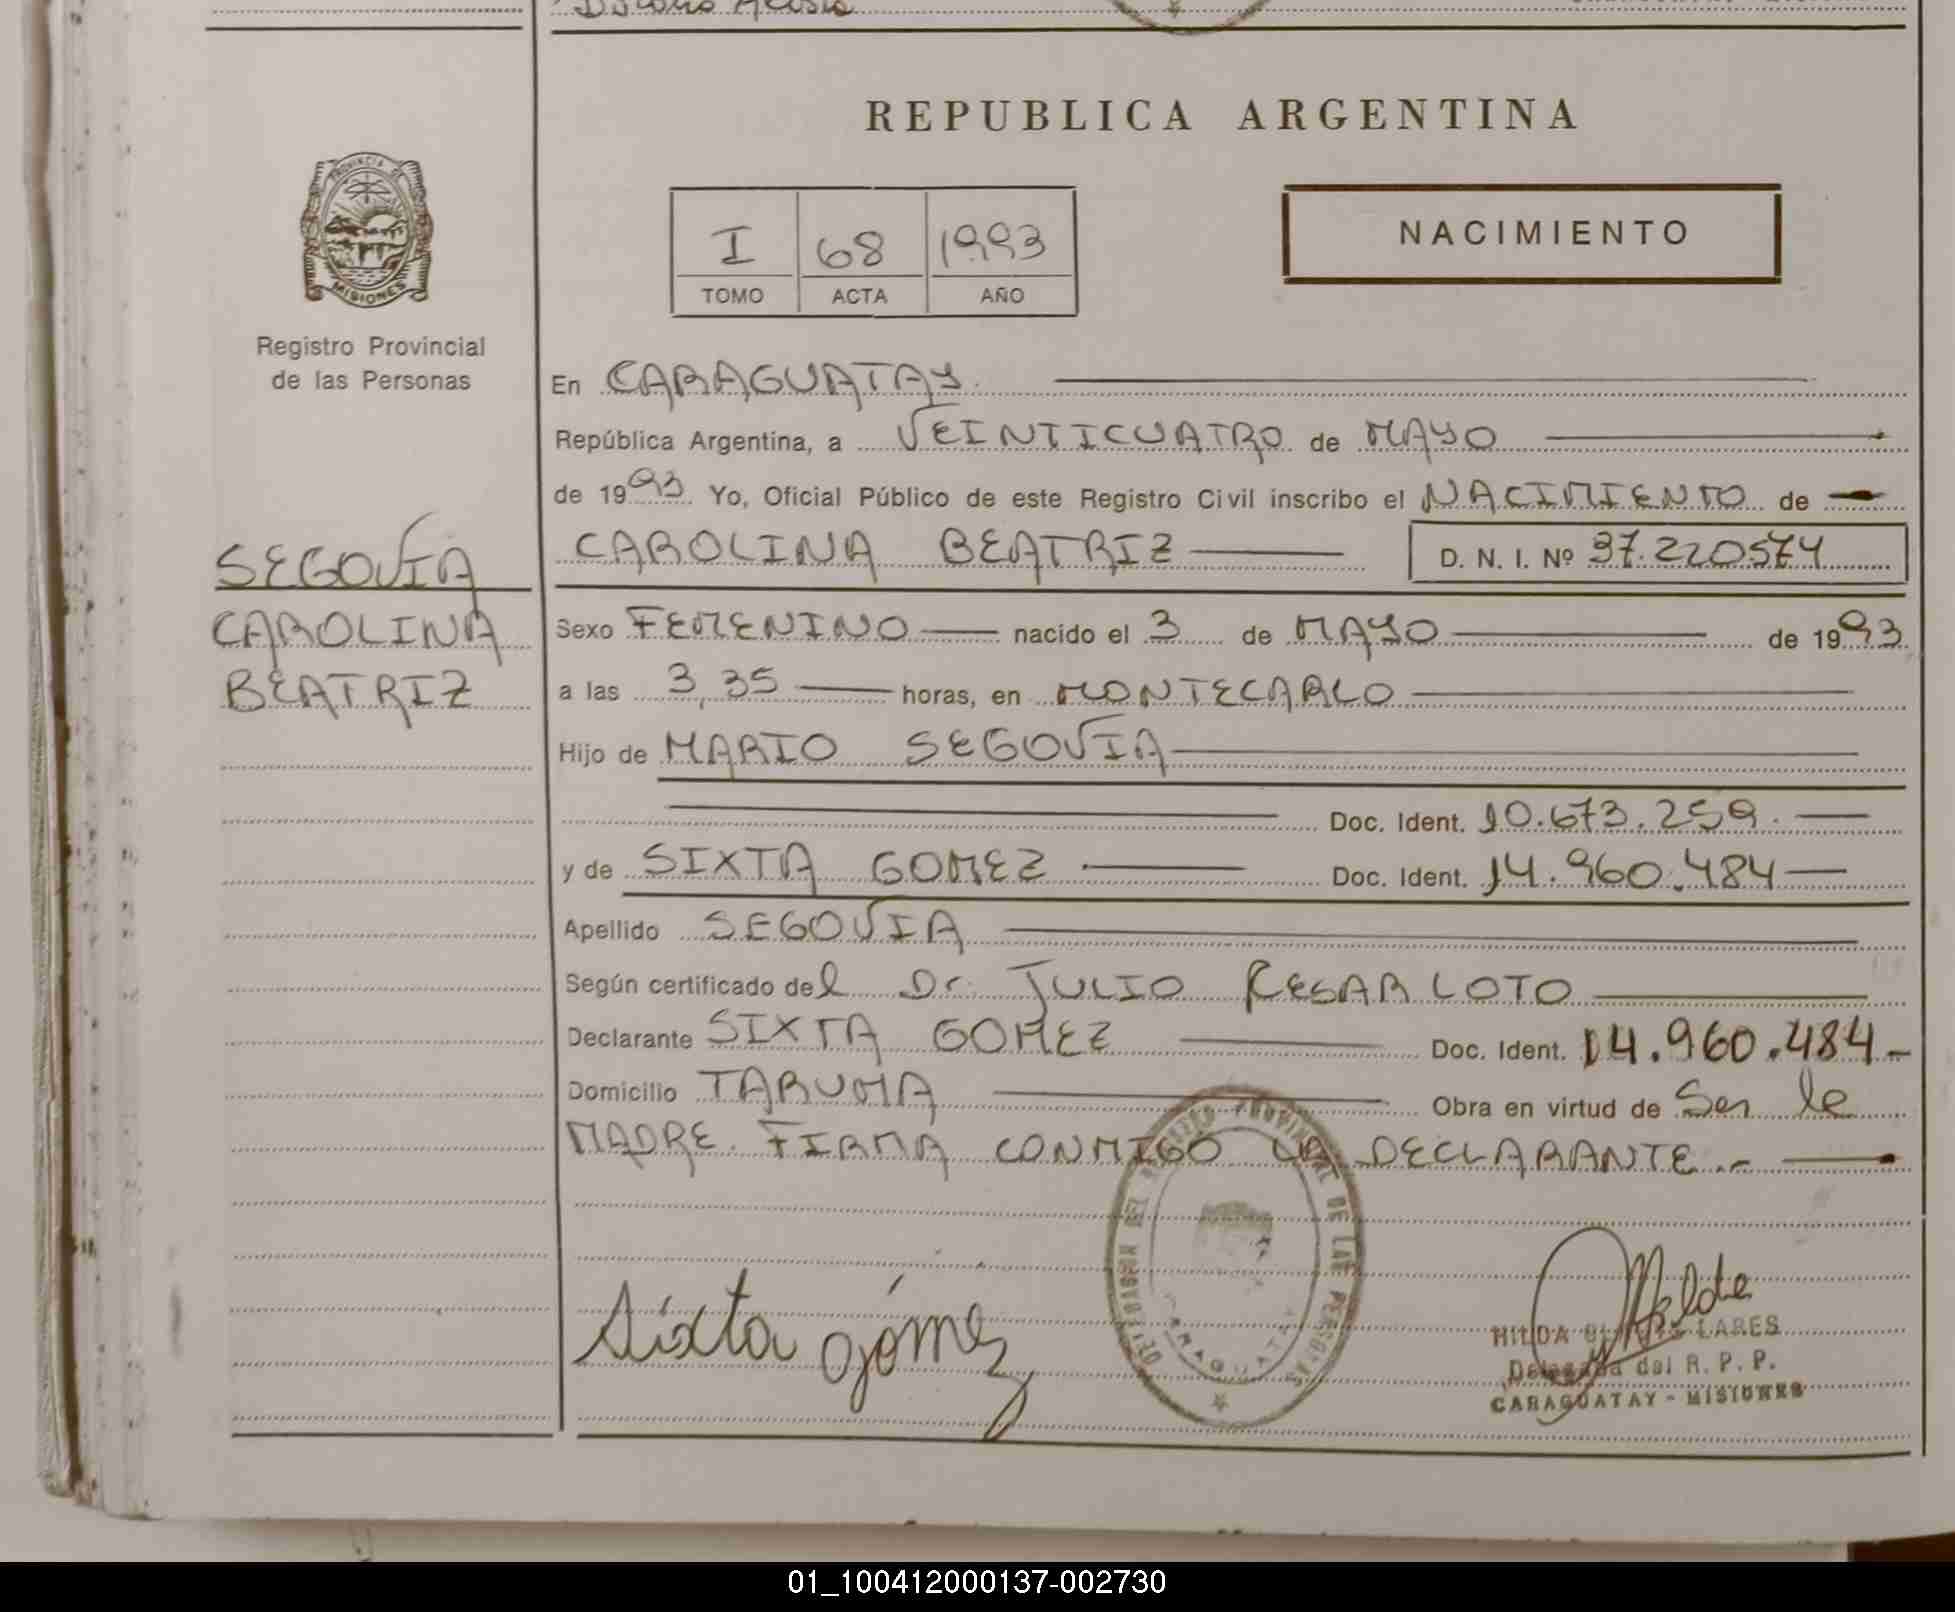 REPUBLICA ARGENTINA
PROVINCIA DE MISIONES
Registro Provincial
de las Personas
I 68 1993
TOMO ACTA AÑO
NACIMIENTO
En CARAGUATAY
República Argentina, a VEINTICUATRO de MAYO
de 1993 Yo, Oficial Público de este Registro Civil inscribo el NACIMIENTO de
SEGOVIA
CAROLINA
BEATRIZ
CAROLINA BEATRIZ D. N. I. Nº 37.220574
Sexo FEMENINO nacido el 3 de MAYO de 1993
a las 3,35 horas, en MONTECARLO
Hijo de MARIO SEGOVIA
Doc. Ident. 10.673.259.
y de SIXTA GOMEZ Doc. Ident. 14.960.484
Apellido SEGOVIA
Según certificado del Dr. JULIO CESAR LOTO
Declarante SIXTA GOMEZ Doc. Ident. 14.960.484-
Domicilio TARUMA Obra en virtud de Ser la
MADRE. FIRMA CONMIGO LA DECLARANTE.-
Sixta gómez
HILDA LARES
Delegada del R. P. P.
CARAGUATAY - MISIONES
CARAGUATAY
01_100412000137-002730